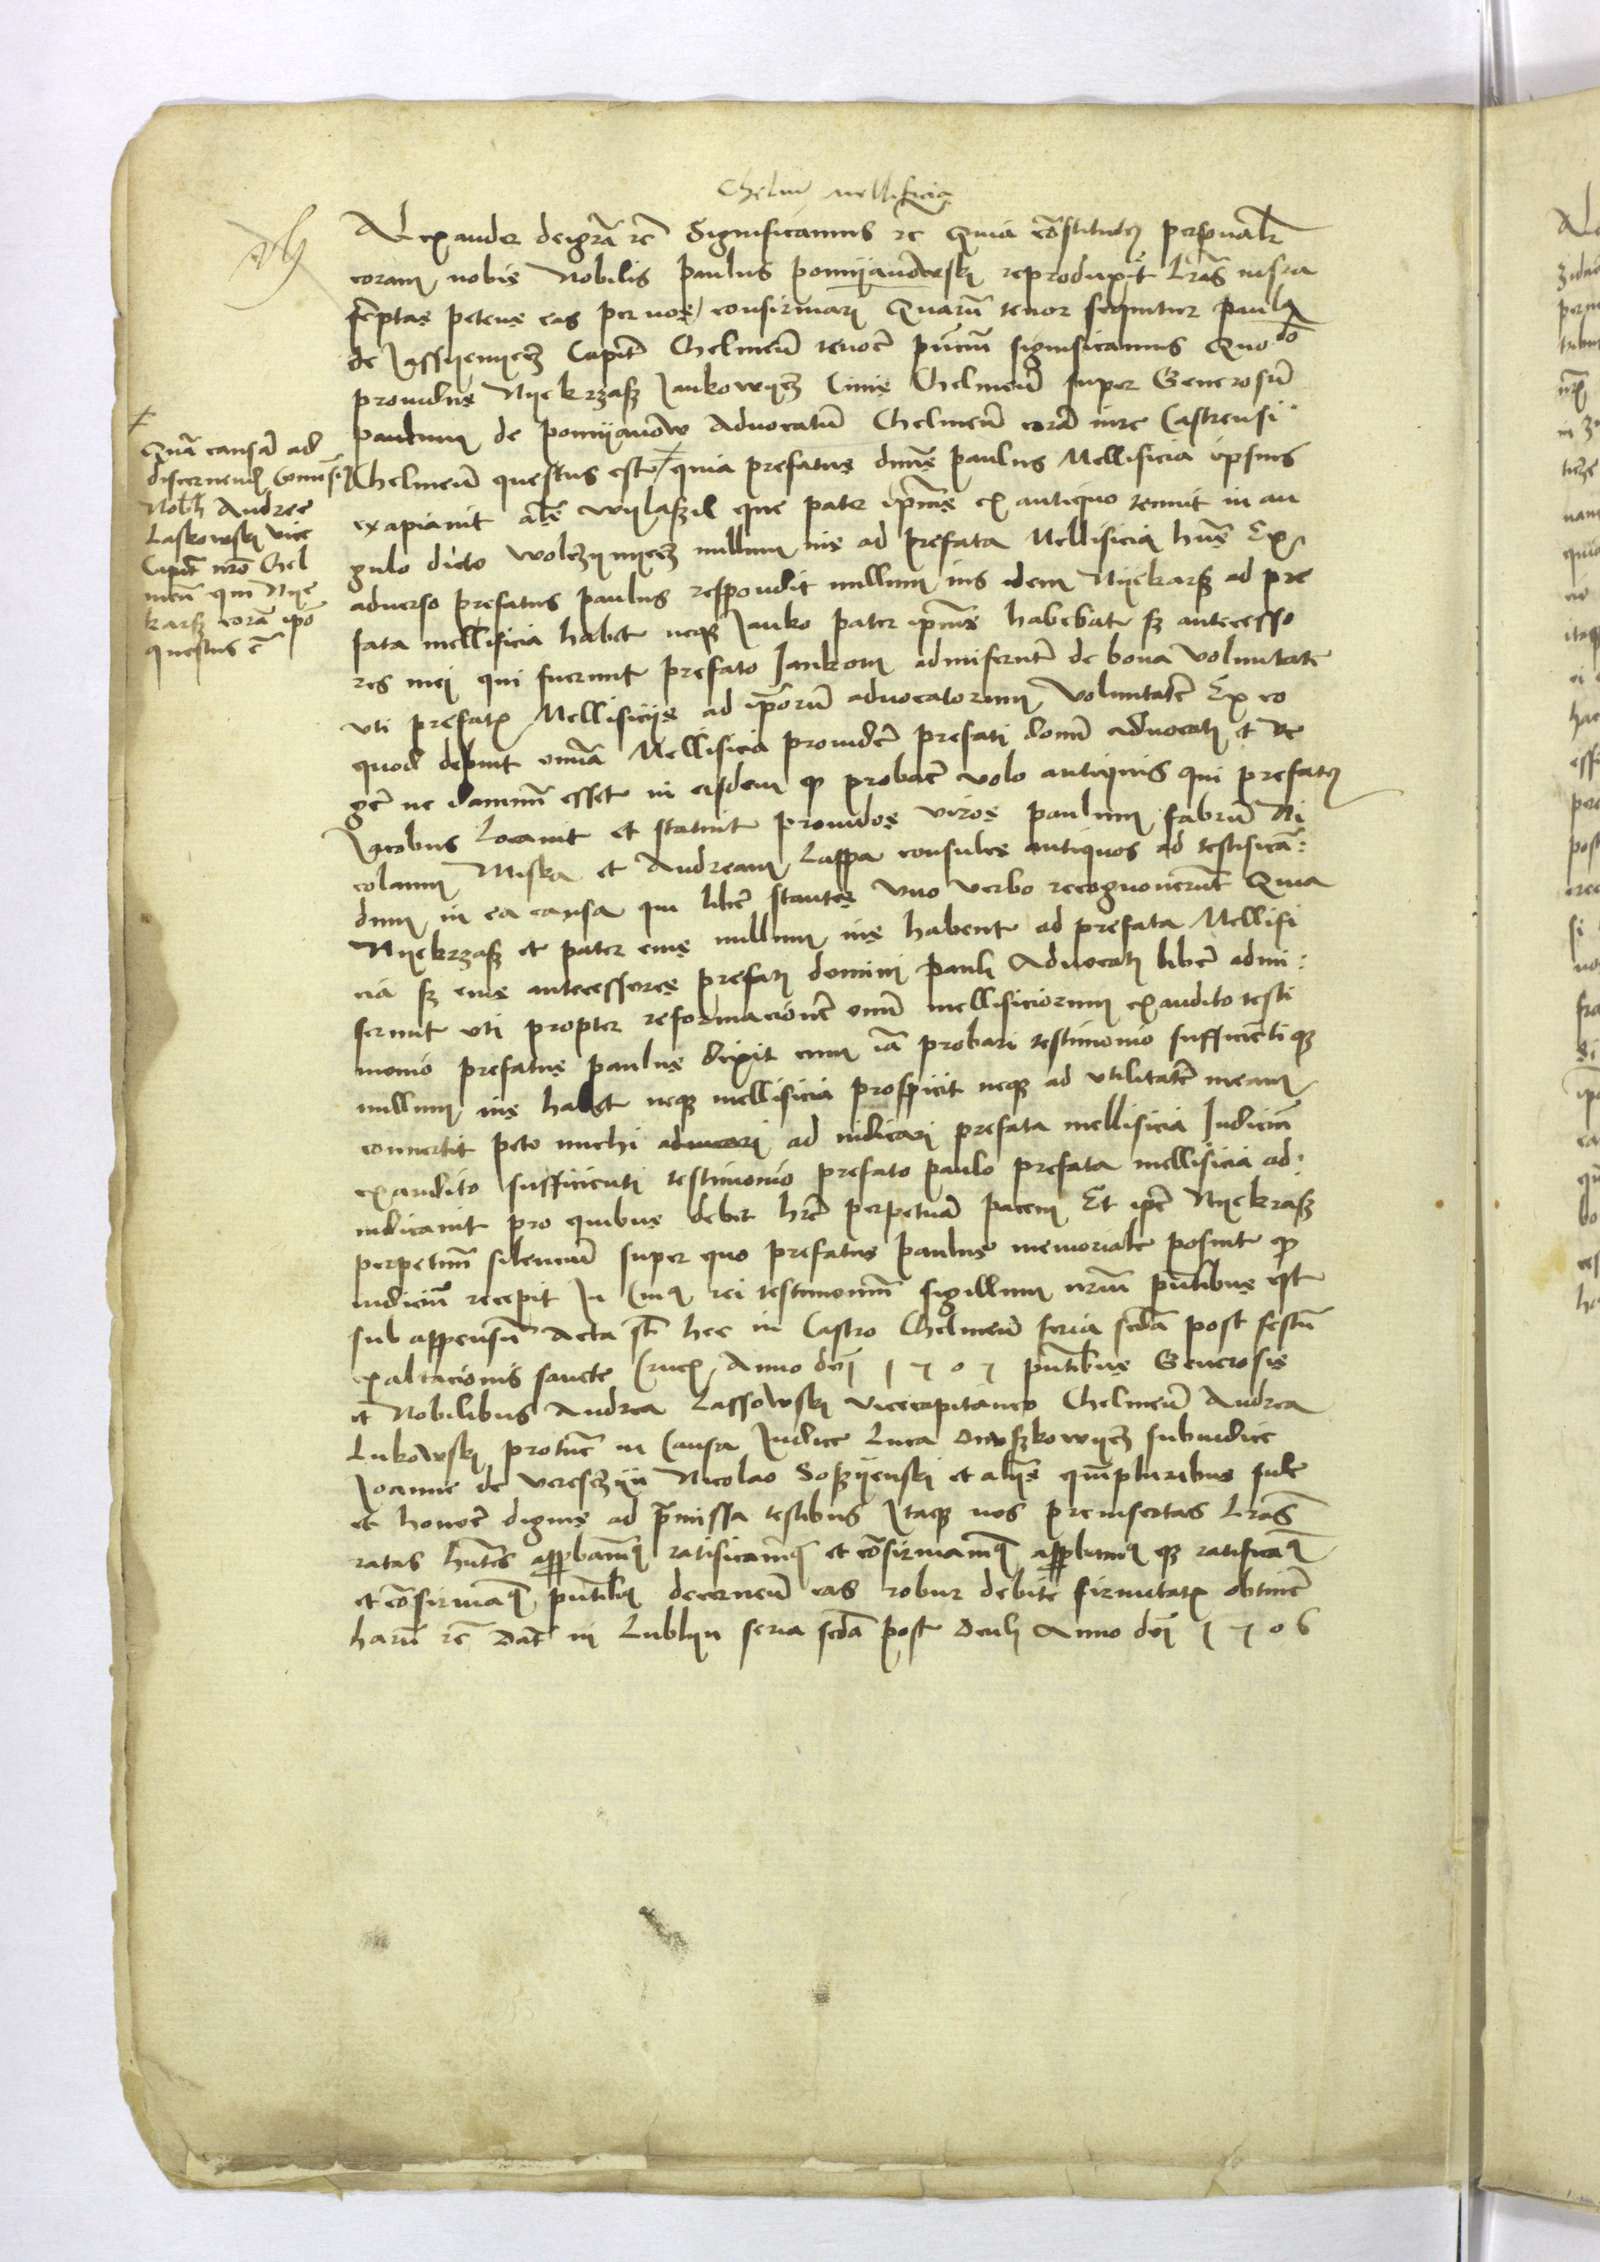 Chelm mellificia
Alexander dei gra rc Significamus rc Quia constitutus personalr
coram nobis Nobilis Paulus pomyanowski reproduxit lras infra
scriptas petens eas per nos confirmari Quarum tenor sequitur Paulus
de Capit Chelmen tenore pntium significamus Quo
providus Nyekrzasz Jankowycz civis Chelmen super Generosum
paulum de pomyanow Advocatum Chelmen coram iure Castrensi
Chelmen questus est quia prefatus dnus paulus Mellificia ipsius
exapiavit als wylazil que pater ipsius ex antiquo tenuit in an
gulo dicto nullum ius ad prefata Mellificia hns Ex
adverso prefatus paulus respondit nullum ius idem Nyekarsz ad pre
fata mellificia habet neque Janko pater ipsius habebat sz antecesso
res mei qui fuerunt prefato Jankoni admiserunt de bona voluntate
uti prefatis Mellificiis ad ipsorum advocatorum voluntatem Ex eo
quod debuit omnia Mellificia providere prefati domini advocati et re
gere ne damnum esset in eisdem quod probare volo antiquis qui prefatus
Jacobus locavit et statuit providos viros paulum fabrum Ni
colaum Miska et Andream Lappa consules antiquos ad testifican
dum in ea causa qui libere stantes uno verbo recognoverunt Quia
Nyekrzasz et pater eius nullum ius habent ad prefata Mellifi
cia sz eius antecessores prefati domini pauli Advocati libere admi
serunt uti propter reformacionem omnium mellificiorum exaudito testi
monio prefatus paulus dixit cum iam probavi testimonio sufficienti quod
nullum ius habet neque mellificia prospicit neque ad utilitatem meam
convertit peto michi ad iudicari prefata mellificia Judicium
exaudito sufficienti testimonio prefato paulo prefata mellificia ad
iudicavit pro quibus debet hre perpetuam pacem Et ipse Nyekrasz
perpetuum silencium super quo prefatus paulus memoriale posuit quod
iudicium recepit In Cuius rei testimonium sigillum nrum pntibus est
sub appensum Acta st hec in Castro Chelmen feria scda post festum
exaltacionis sancte Crucis Anno dni 1 5 0 5 pntibus Generosis
et Nobilibus Andrea Lassowski vicecapitaneo Chelmen Andrea
Lukowski protunc in Causa Judice Luca subiudice
Joanne de vereszczyn Nicolao et aliis quampluribus fide
et honore dignis ad premissa testibus Itaque nos preinsertas lras
ratas hntes approbamus ratificamus et confirmamus approbatas que ratificatas
et confirmamus pntibus decernen eas robur debite firmitatis obtinere
harum rc Dat in Lublyn feria scda post Oculi Anno dni 1 5 0 6
Quam causam ad
discernend comisi
Nobli Andree
Laskowski vice
Capit nro Chel
men qui Nye
karsz coram ipso
questus e